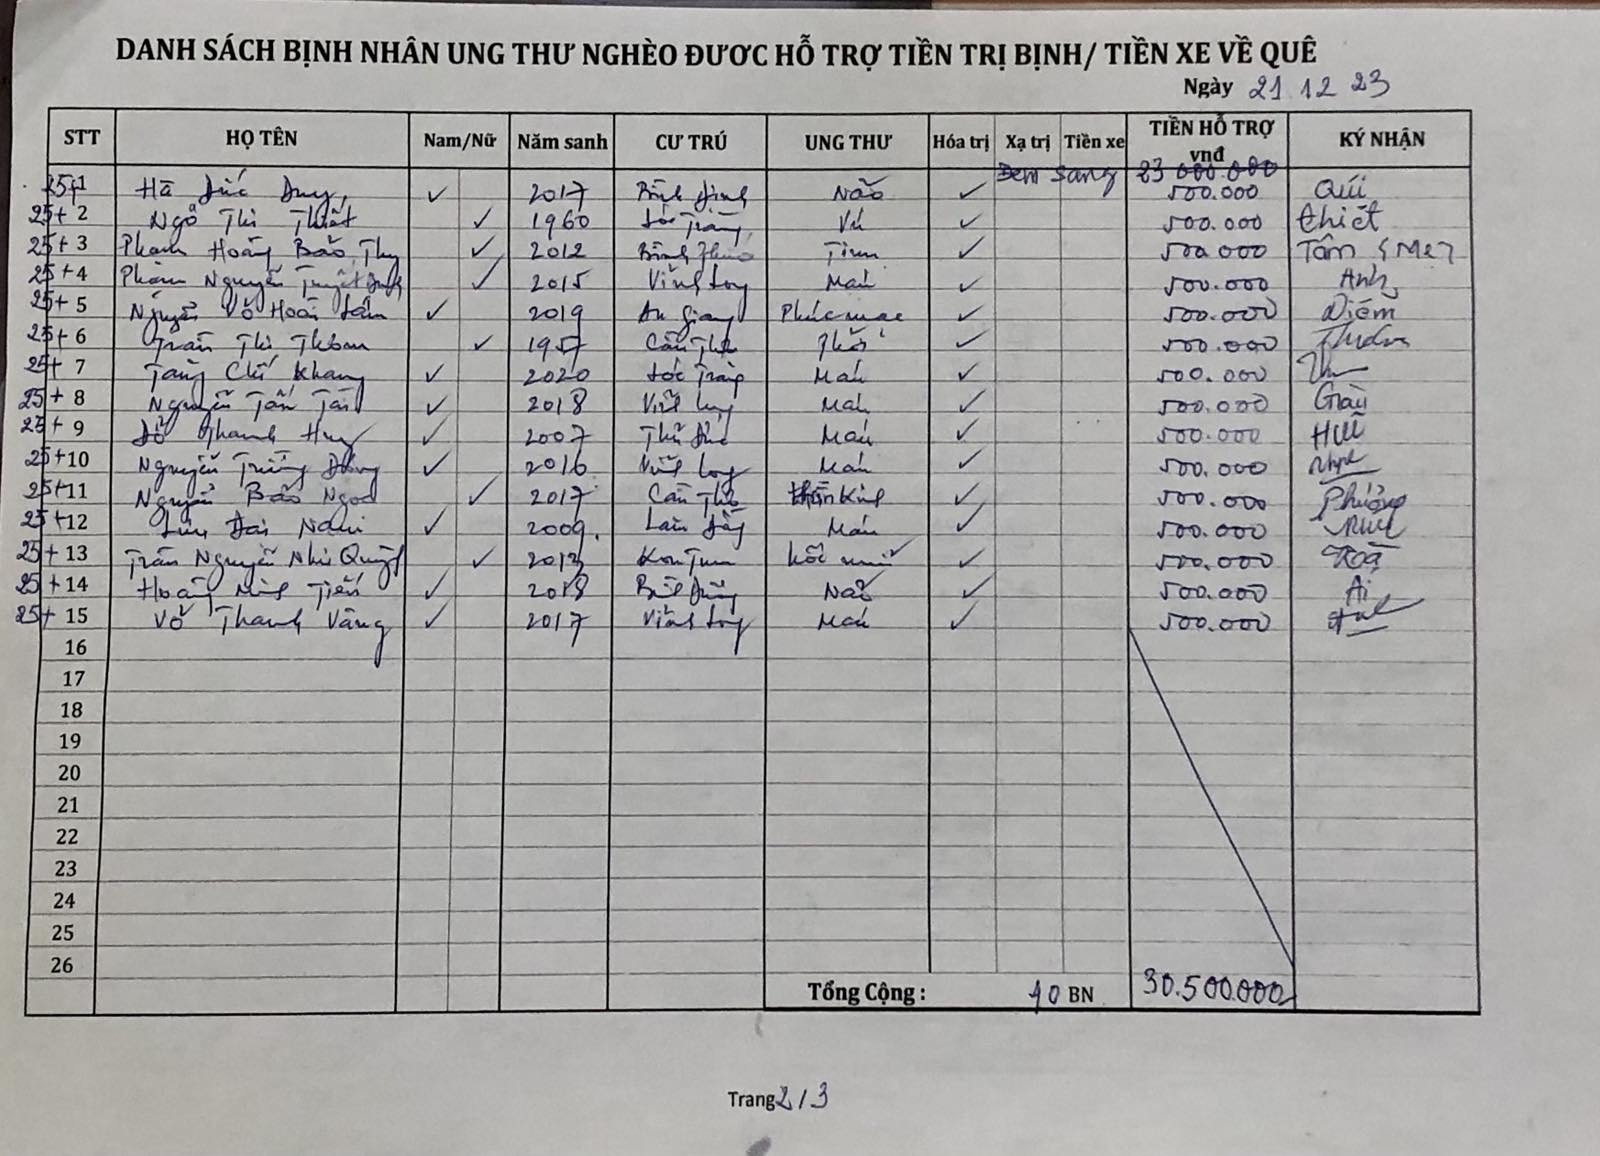 DANH SÁCH BỊNH NHÂN UNG THƯ NGHÈO ĐƯƠC HỖ TRỢ TIỀN TRỊ BỊNH/ TIỀN XE VỀ QUÊ
Ngày 21 12 23
STT HỌ TÊN Nam/Nữ Năm sanh CƯ TRÚ UNG THƯ Hóa trị Xạ trị Tiền xe TIỀN HỖ TRỢ vnđ KÝ NHẬN
Đem sang 23 000.000
25+1 Hà Đức Duy ✓ 2017 Bình Định Não ✓ 500.000 Quí
25+ 2 Ngô Thị Thiết ✓ 1960 Sóc Trăng Vú ✓ 500.000 thiết
25+ 3 Phạm Hoàng Bảo Thy ✓ 2012 ✓ 500.000 Tâm
25+ 4 Phạm Nguyễn Tuyết ✓ 2015 Vĩnh Long Máu ✓ 500.000 Anh
25+ 5 Nguyễn Võ Hoài ✓ 2019 An Giang Phúc mạc ✓ 500.000 Diễm
25+ 6 Trần Thị ✓ 1957 Cần Thơ Phổi ✓ 500.000
25+ 7 Tăng Chí Khang ✓ 2020 Sóc Trăng Máu ✓ 500.000
25+ 8 Nguyễn Tấn Tài ✓ 2018 Vĩnh Long Máu ✓ 500.000 Giàu
25+ 9 Đỗ Thanh Huy ✓ 2007 Thủ Đức Máu ✓ 500.000 Huê
25+10 Nguyễn Trường ✓ 2016 Vĩnh Long Máu ✓ 500.000
25+11 Nguyễn Bảo Ngọc ✓ 2017 Cần Thơ thần Kinh ✓ 500.000 Phượng
25+12 Đại Nam ✓ 2009. Lâm Đồng Máu ✓ 500.000
25+ 13 Trần Nguyễn Như Quỳnh ✓ Kon Tum hốc mũi ✓ 500.000
25+ 14 Hoàng Minh Tiến ✓ 2018 Não ✓ 500.000 Ái
25+ 15 Võ Thanh Vâng ✓ 2017 Vĩnh Long Máu ✓ 500.000
16
17
18
19
20
21
22
23
24
25
26
Tổng Cộng : 40 BN 30.500.000
Trang 2/3